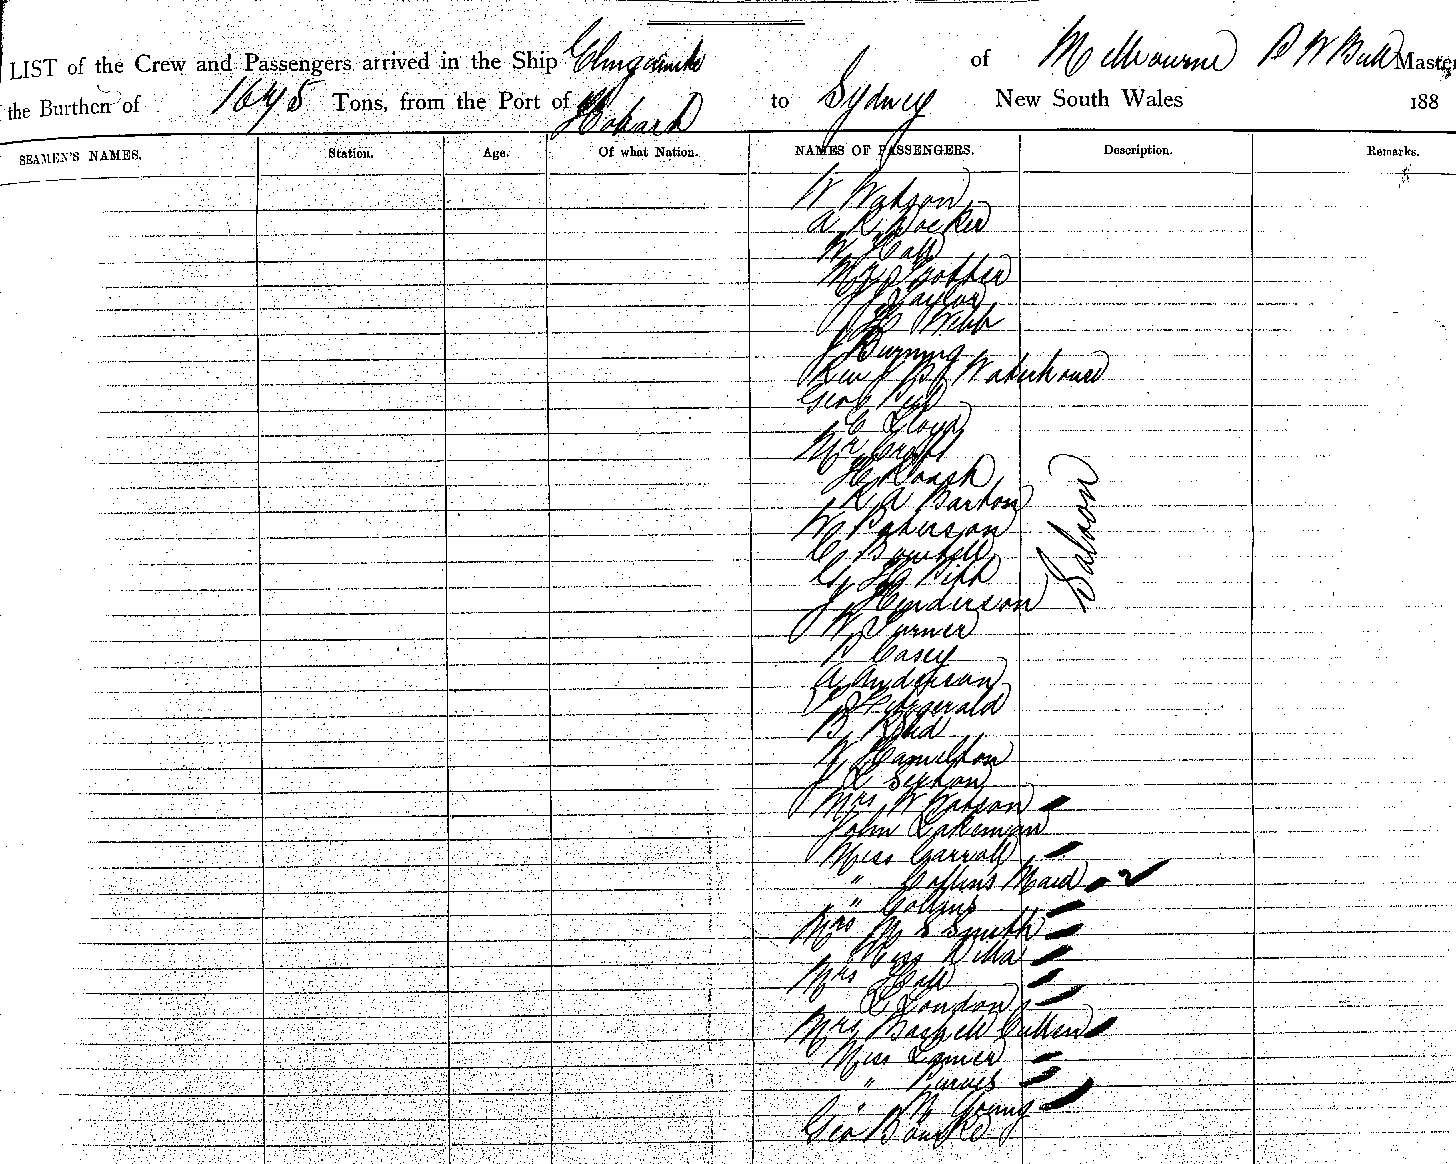 LIST of the Crew and Passengers arrived in the Ship Elingamite of Melbourne B W Bull Master
the Burthen of 1675 Tons, from the Port of Hobart to Sydney New South Wales 188
SEAMEN'S NAMES. Station. Age. Of what Nation. NAMES OF PASSENGERS. Description. Remarks.
W Watson
A R Docker
W Hall
Mrs Trotter
J Taylor
J H Webb
J Burning
Rev J B Waterhouse
Geo
C Lloyd
Mr Croft
H Roach
R A Barton
W Paterson
G
G H Pitt
J Henderson
W Turner
P Casey
A Anderson
Fitzgerald
B Reid
W Hamilton
J L Sexton
Mrs W Watson
John Lakeman
Miss Carroll
" Collins Maid
" Collins
Mrs M S Smith
Miss
Mrs Hall
L London
Mrs Cullen
Miss
" Purves
" M Young
Geo Bourke
Saloon